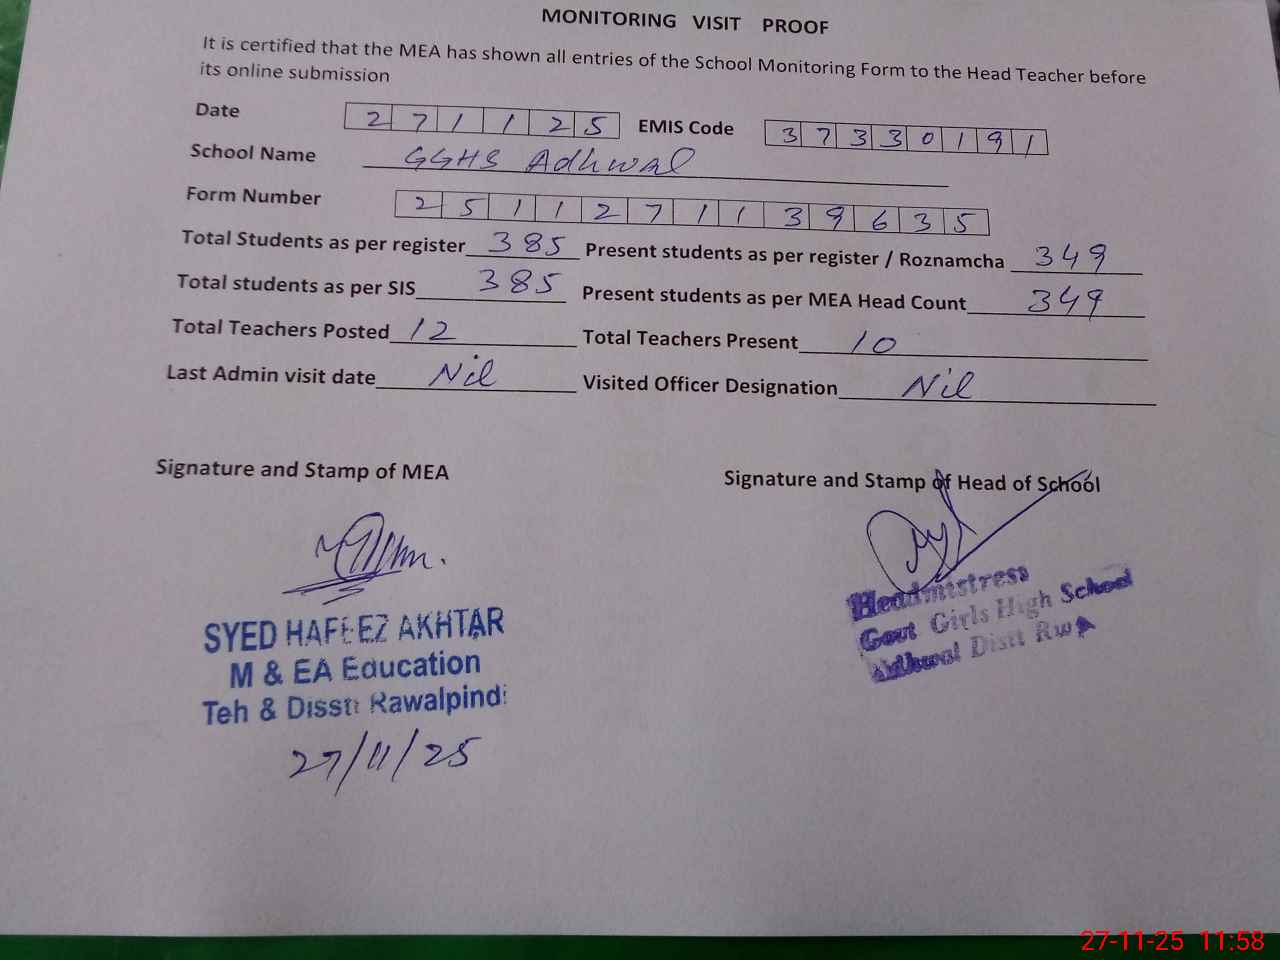 MONITORING VISIT PROOF
It is certified that the MEA has shown all entries of the School Monitoring Form to the Head Teacher before
its online submission
Date 271125 EMIS Code 37330191
School Name GGHS Adhwal
Form Number 2511271139635
Total Students as per register 385 Present students as per register / Roznamcha 349
Total students as per SIS 385 Present students as per MEA Head Count 349
Total Teachers Posted 12 Total Teachers Present 10
Last Admin visit date Nil Visited Officer Designation Nil
Signature and Stamp of MEA Signature and Stamp of Head of School
SYED HAFEEZ AKHTAR
M & EA Education
Teh & Disstt Rawalpindi
27/11/25
Headmistress
Govt Girls High School
Adhwal Distt Rwp
27-11-25 11:58